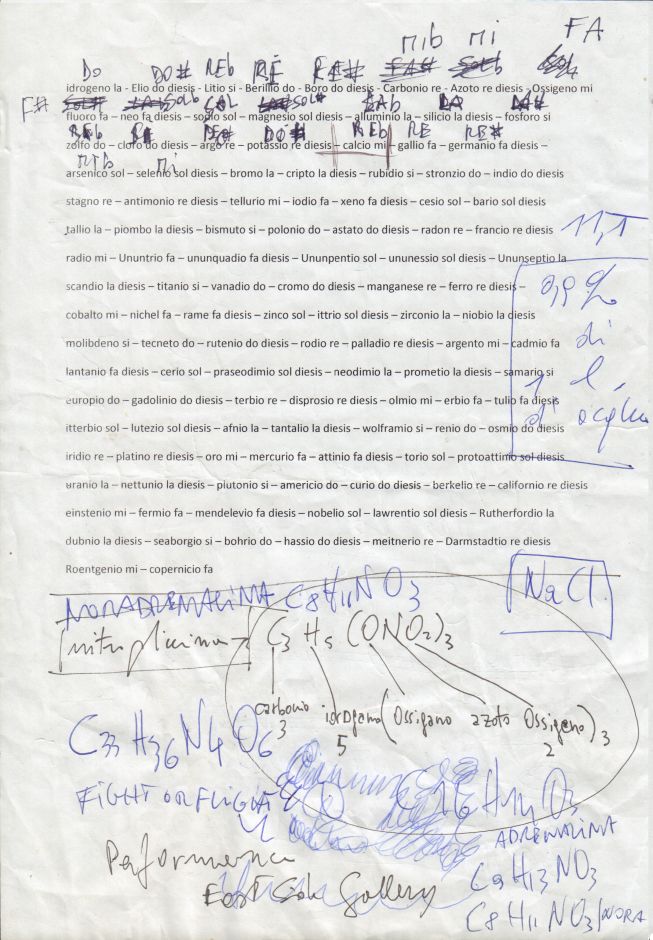 FA
mib mi
DO DO# REb RE RE#
idrogeno la - Elio do diesis - Litio si - Berillio do - Boro do diesis - Carbonio re - Azoto re diesis - Ossigeno mi
F# SOLb SOL SOL# LAb LA
fluoro fa – neo fa diesis – sodio sol – magnesio sol diesis – alluminio la – silicio la diesis – fosforo si
REb RE DO# REb RE RE#
zolfo do – cloro do diesis – argo re – potassio re diesis – calcio mi – gallio fa – germanio fa diesis –
mib mi
arsenico sol – selenio sol diesis – bromo la – cripto la diesis – rubidio si – stronzio do – indio do diesis
stagno re – antimonio re diesis – tellurio mi – iodio fa – xeno fa diesis – cesio sol – bario sol diesis
tallio la – piombo la diesis – bismuto si – polonio do – astato do diesis – radon re – francio re diesis
radio mi – Ununtrio fa – ununquadio fa diesis – Ununpentio sol – ununessio sol diesis – Ununseptio la
scandio la diesis – titanio si – vanadio do – cromo do diesis – manganese re – ferro re diesis –
cobalto mi – nichel fa – rame fa diesis – zinco sol – ittrio sol diesis – zirconio la – niobio la diesis
molibdeno si – tecneto do – rutenio do diesis – rodio re – palladio re diesis – argento mi – cadmio fa
lantanio fa diesis – cerio sol – praseodimio sol diesis – neodimio la – prometio la diesis – samario si
europio do – gadolinio do diesis – terbio re – disprosio re diesis – olmio mi – erbio fa – tulio fa diesis
itterbio sol – lutezio sol diesis – afnio la – tantalio la diesis – wolframio si – renio do – osmio do diesis
iridio re – platino re diesis – oro mi – mercurio fa – attinio fa diesis – torio sol – protoattinio sol diesis
uranio la – nettunio la diesis – plutonio si – americio do – curio do diesis – berkelio re – californio re diesis
einstenio mi – fermio fa – mendelevio fa diesis – nobelio sol – lawrentio sol diesis – Rutherfordio la
dubnio la diesis – seaborgio si – bohrio do – hassio do diesis – meitnerio re – Darmstadtio re diesis
Roentgenio mi – copernicio fa
di
1 l,
di acqua
NaCl.
NORADRENALINA C8H11NO3
nitroglicerina C3H5(ONO2)3
carbonio idrogeno (Ossigeno azoto Ossigeno)3
3 5 2
C33H36N4O6
FIGHT OR FLIGHT
ADRENALINA
C9H13NO3
Performance
East Side Gallery
C8H11NO3/NORA